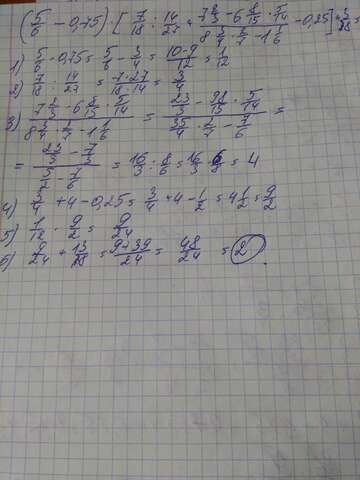 (5/6 - 0,75) · [7/18 : 14/27 + (7 2/3 - 6 8/15 · 5/14)/(8 3/4 · 2/7 - 1 1/6) - 0,25] +
1) 5/6 - 0,75 = 5/6 - 3/4 = (10-9)/12 = 1/12
2) 7/18 : 14/27 = 7·27/18·14 = 3/4
3) (7 2/3 - 6 8/15 · 5/14)/(8 3/4 · 2/7 - 1 1/6) = (23/3 - 98/15 · 5/14)/(35/4 · 2/7 - 7/6) =
= (23/3 - 7/3)/(5/2 - 7/6) = 16/3 : 8/6 = 16/3 · 6/8 = 4
4) 3/4 + 4 - 0,25 = 3/4 + 4 - 1/2 = 4 1/2 = 9/2
5) 1/12 · 9/2 = 9/24
6) 9/24 + 13/8 = (9+39)/24 = 48/24 = 2